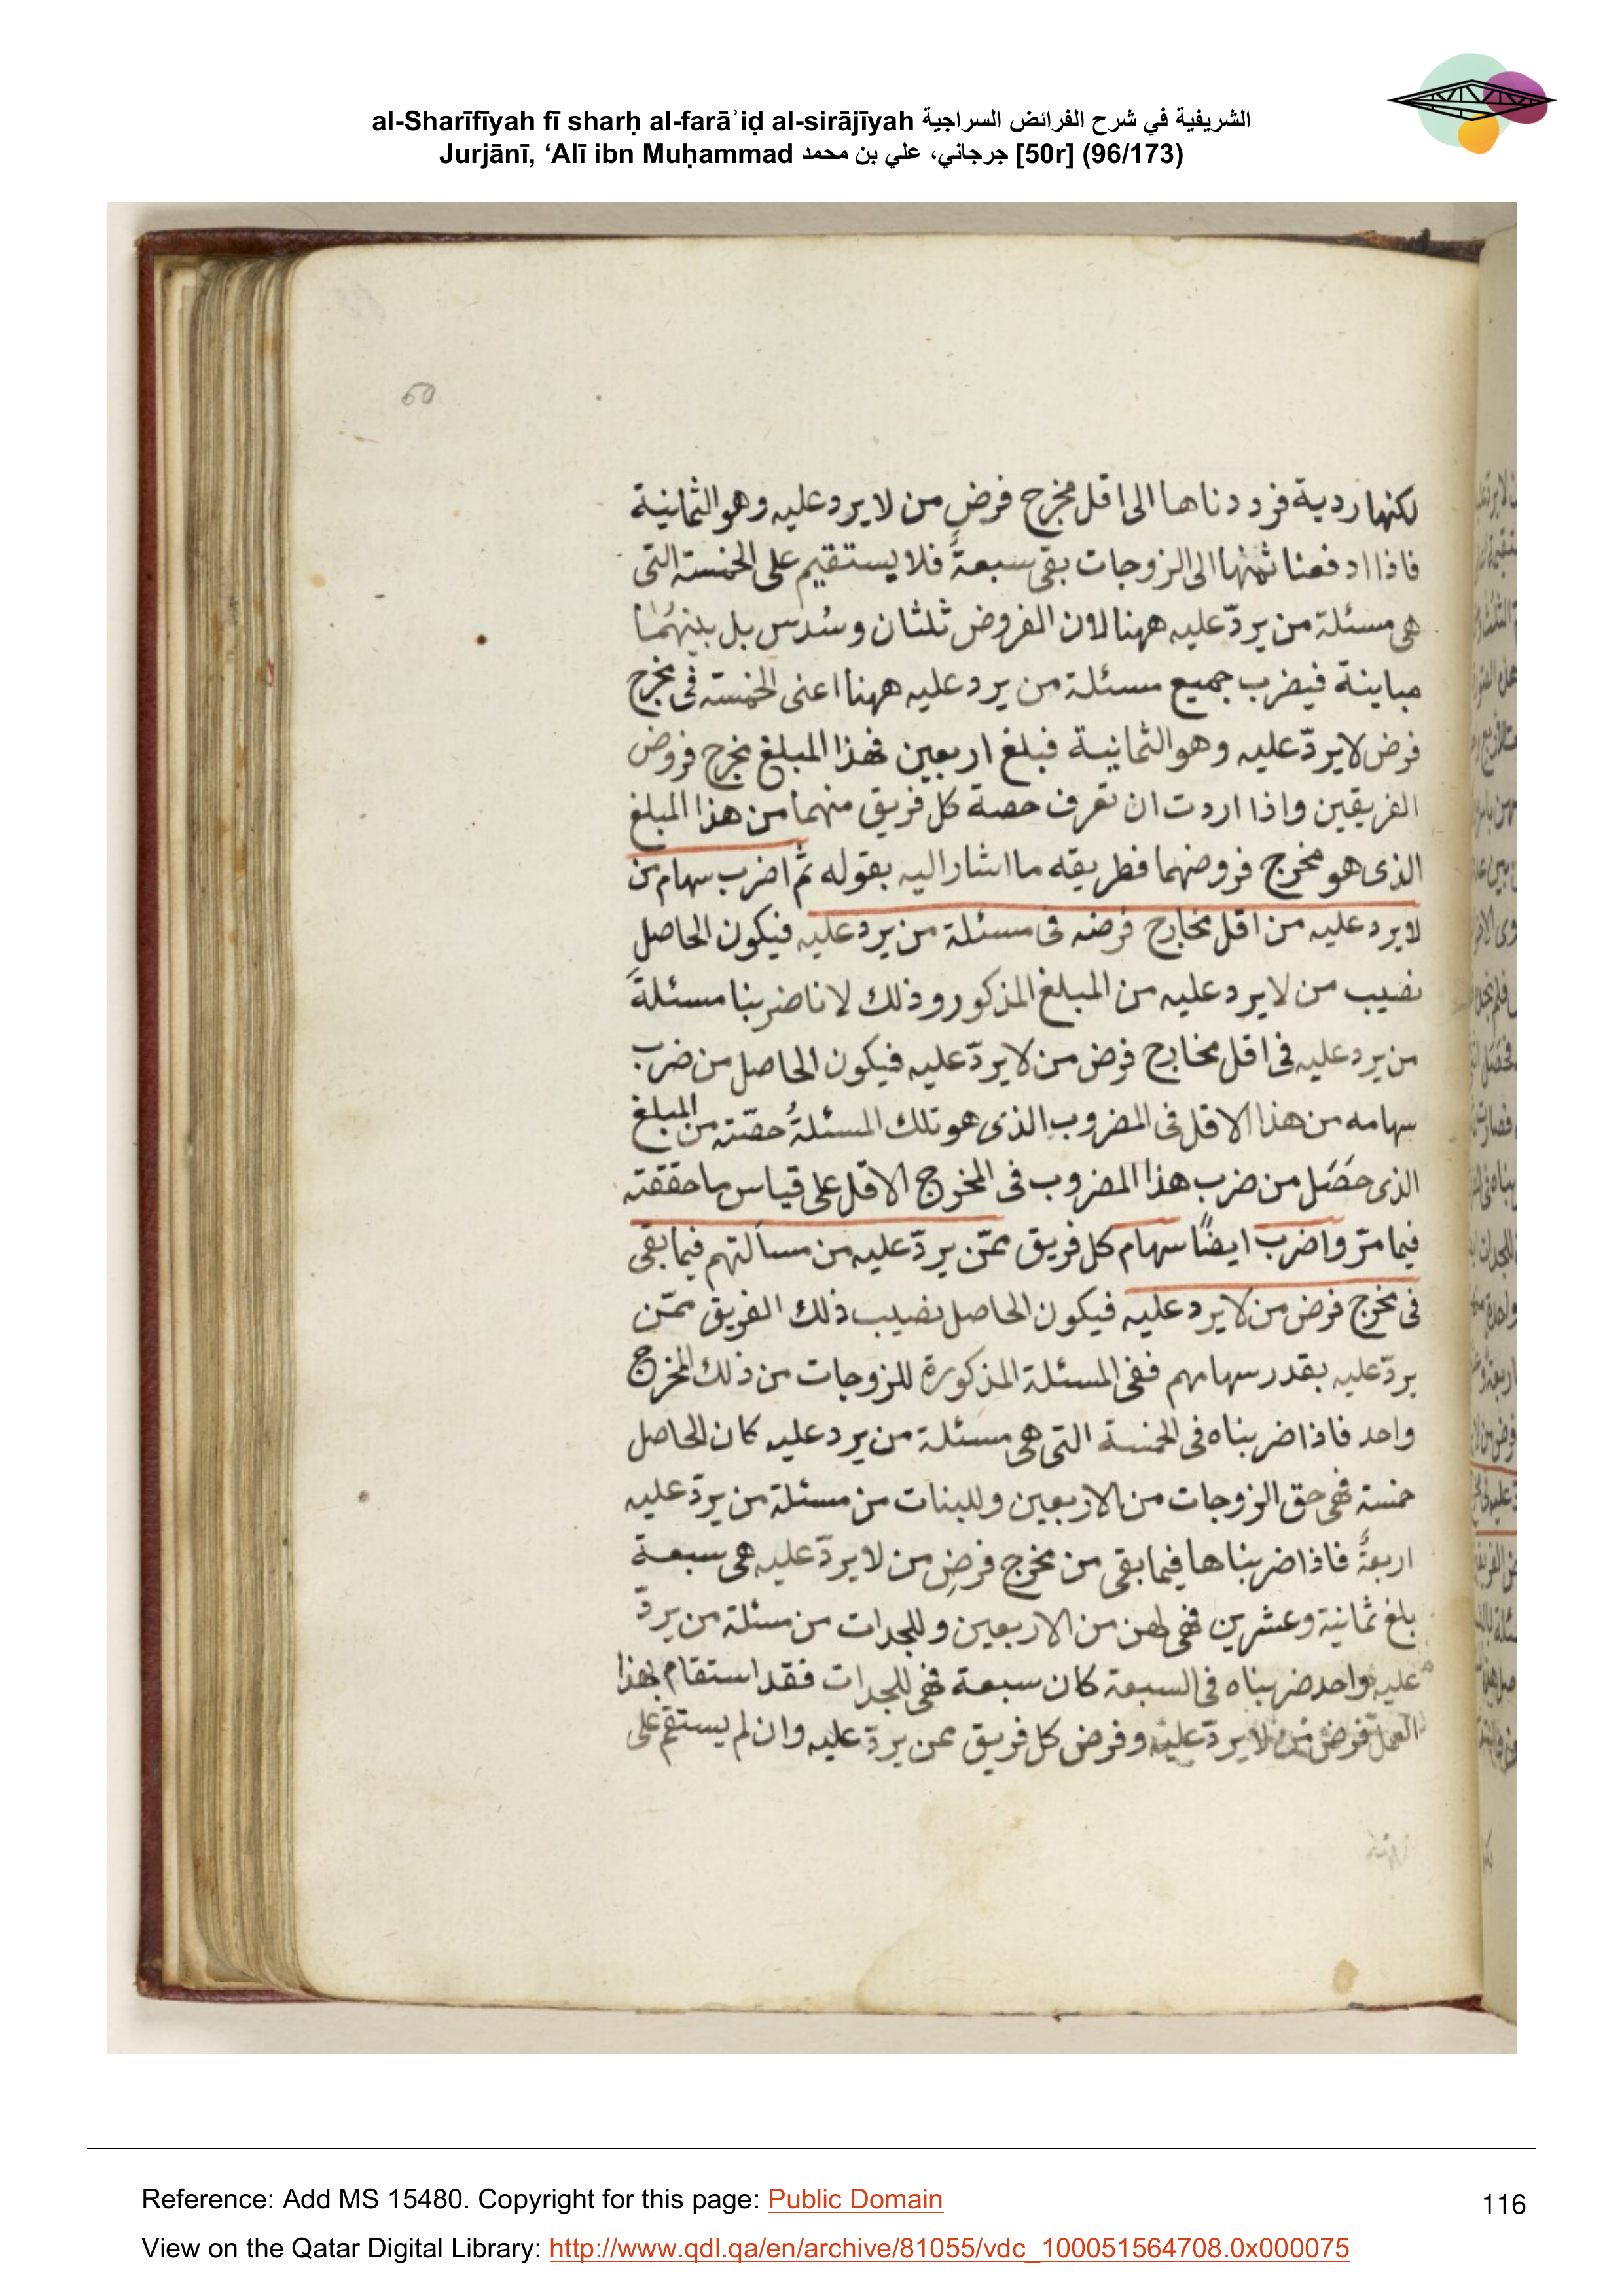 al-Sharīfīyah fī sharḥ al-farāʾiḍ al-sirājīyah الشريفية في شرح الفرائض السراجية
Jurjānī, ‘Alī ibn Muḥammad جرجاني، علي بن محمد [50r] (96/173)
50
لكنها ردية فرددناها الى اقل مخرج فرض من لا يرد عليه وهو الثمانية
فاذا ادفعنا ثمنها الى الزوجات بقى سبعةٌ فلا يستقيم على الخمسة التى
هى مسئلة من يردّ عليه ههنا لان الفروض ثلثان وسُدس بل بينهُما
مباينة فيضرب جميع مسئلة من يرد عليه ههنا اعنى الخمسة فى مخرج
فرض لا يردّ عليه وهو الثمانية فبلغ اربعين فهذا المبلغ مخرج فروض
الفريقين واذا اردت ان تعرف حصة كل فريق منهما من هذا المبلغ
الذى هو مخرج فروضهما فطريقه ما اشار اليه بقوله ثم اضرب سهام من
لا يرد عليه من اقل مخارج فرضه فى مسئلة من يرد عليه فيكون الحاصل
نصيب من لا يرد عليه من المبلغ المذكور وذلك لانا ضربنا مسئلةَ
من يرد عليه فى اقل مخارج فرض من لا يردّ عليه فيكون الحاصل من ضرب
سهامه من هذا الاقل فى المضروب الذى هو تلك المسئلةُ حصّته من المبلغ
الذى حصَل من ضرب هذا المضروب فى المخرج الاقل على قياس ما حققته
فيما مرّ واضرب ايضًا سهام كل فريق ممّن يردّ عليه من مسألتهم فيما بقى
فى مخرج فرض من لا يرد عليه فيكون الحاصل نصيب ذلك الفريق ممّن
يردّ عليه بقدر سهامهم ففى المسئلة المذكورة للزوجات من ذلك المخرج
واحد فاذا ضربناه فى الخمسة التى هى مسئلة من يرد عليه كان الحاصل
خمسة فهى حق الزوجات من الاربعين وللبنات من مسئلة من يردّ عليه
اربعةٌ فاذا ضربناها فيما بقى من مخرج فرضِ من لا يردّ عليه هى سبعة
بلغ ثمانية وعشرين فهى لهن من الاربعين وللجدات من مسئلة من يردّ
عليه واحد ضربناه فى السبعة كان سبعة فهى للجدات فقد استقام بهذا
العمل فرض من لا يردّ عليه وفرض كل فريق ممن يردّ عليه وان لم يستقم على
Reference: Add MS 15480. Copyright for this page: Public Domain
116
View on the Qatar Digital Library: http://www.qdl.qa/en/archive/81055/vdc_100051564708.0x000075